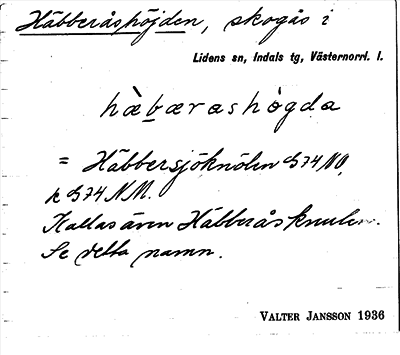 Häbberåshöjden, skogås i
Lidens sn, Indals tg, Västernorrl. l.
hàb̲æra̲shö̀gda
= Häbbersjöknölen G74 NO,
k G74 NM.
Kallas även Häbberåsknulen.
Se detta namn.
VALTER JANSSON 1936